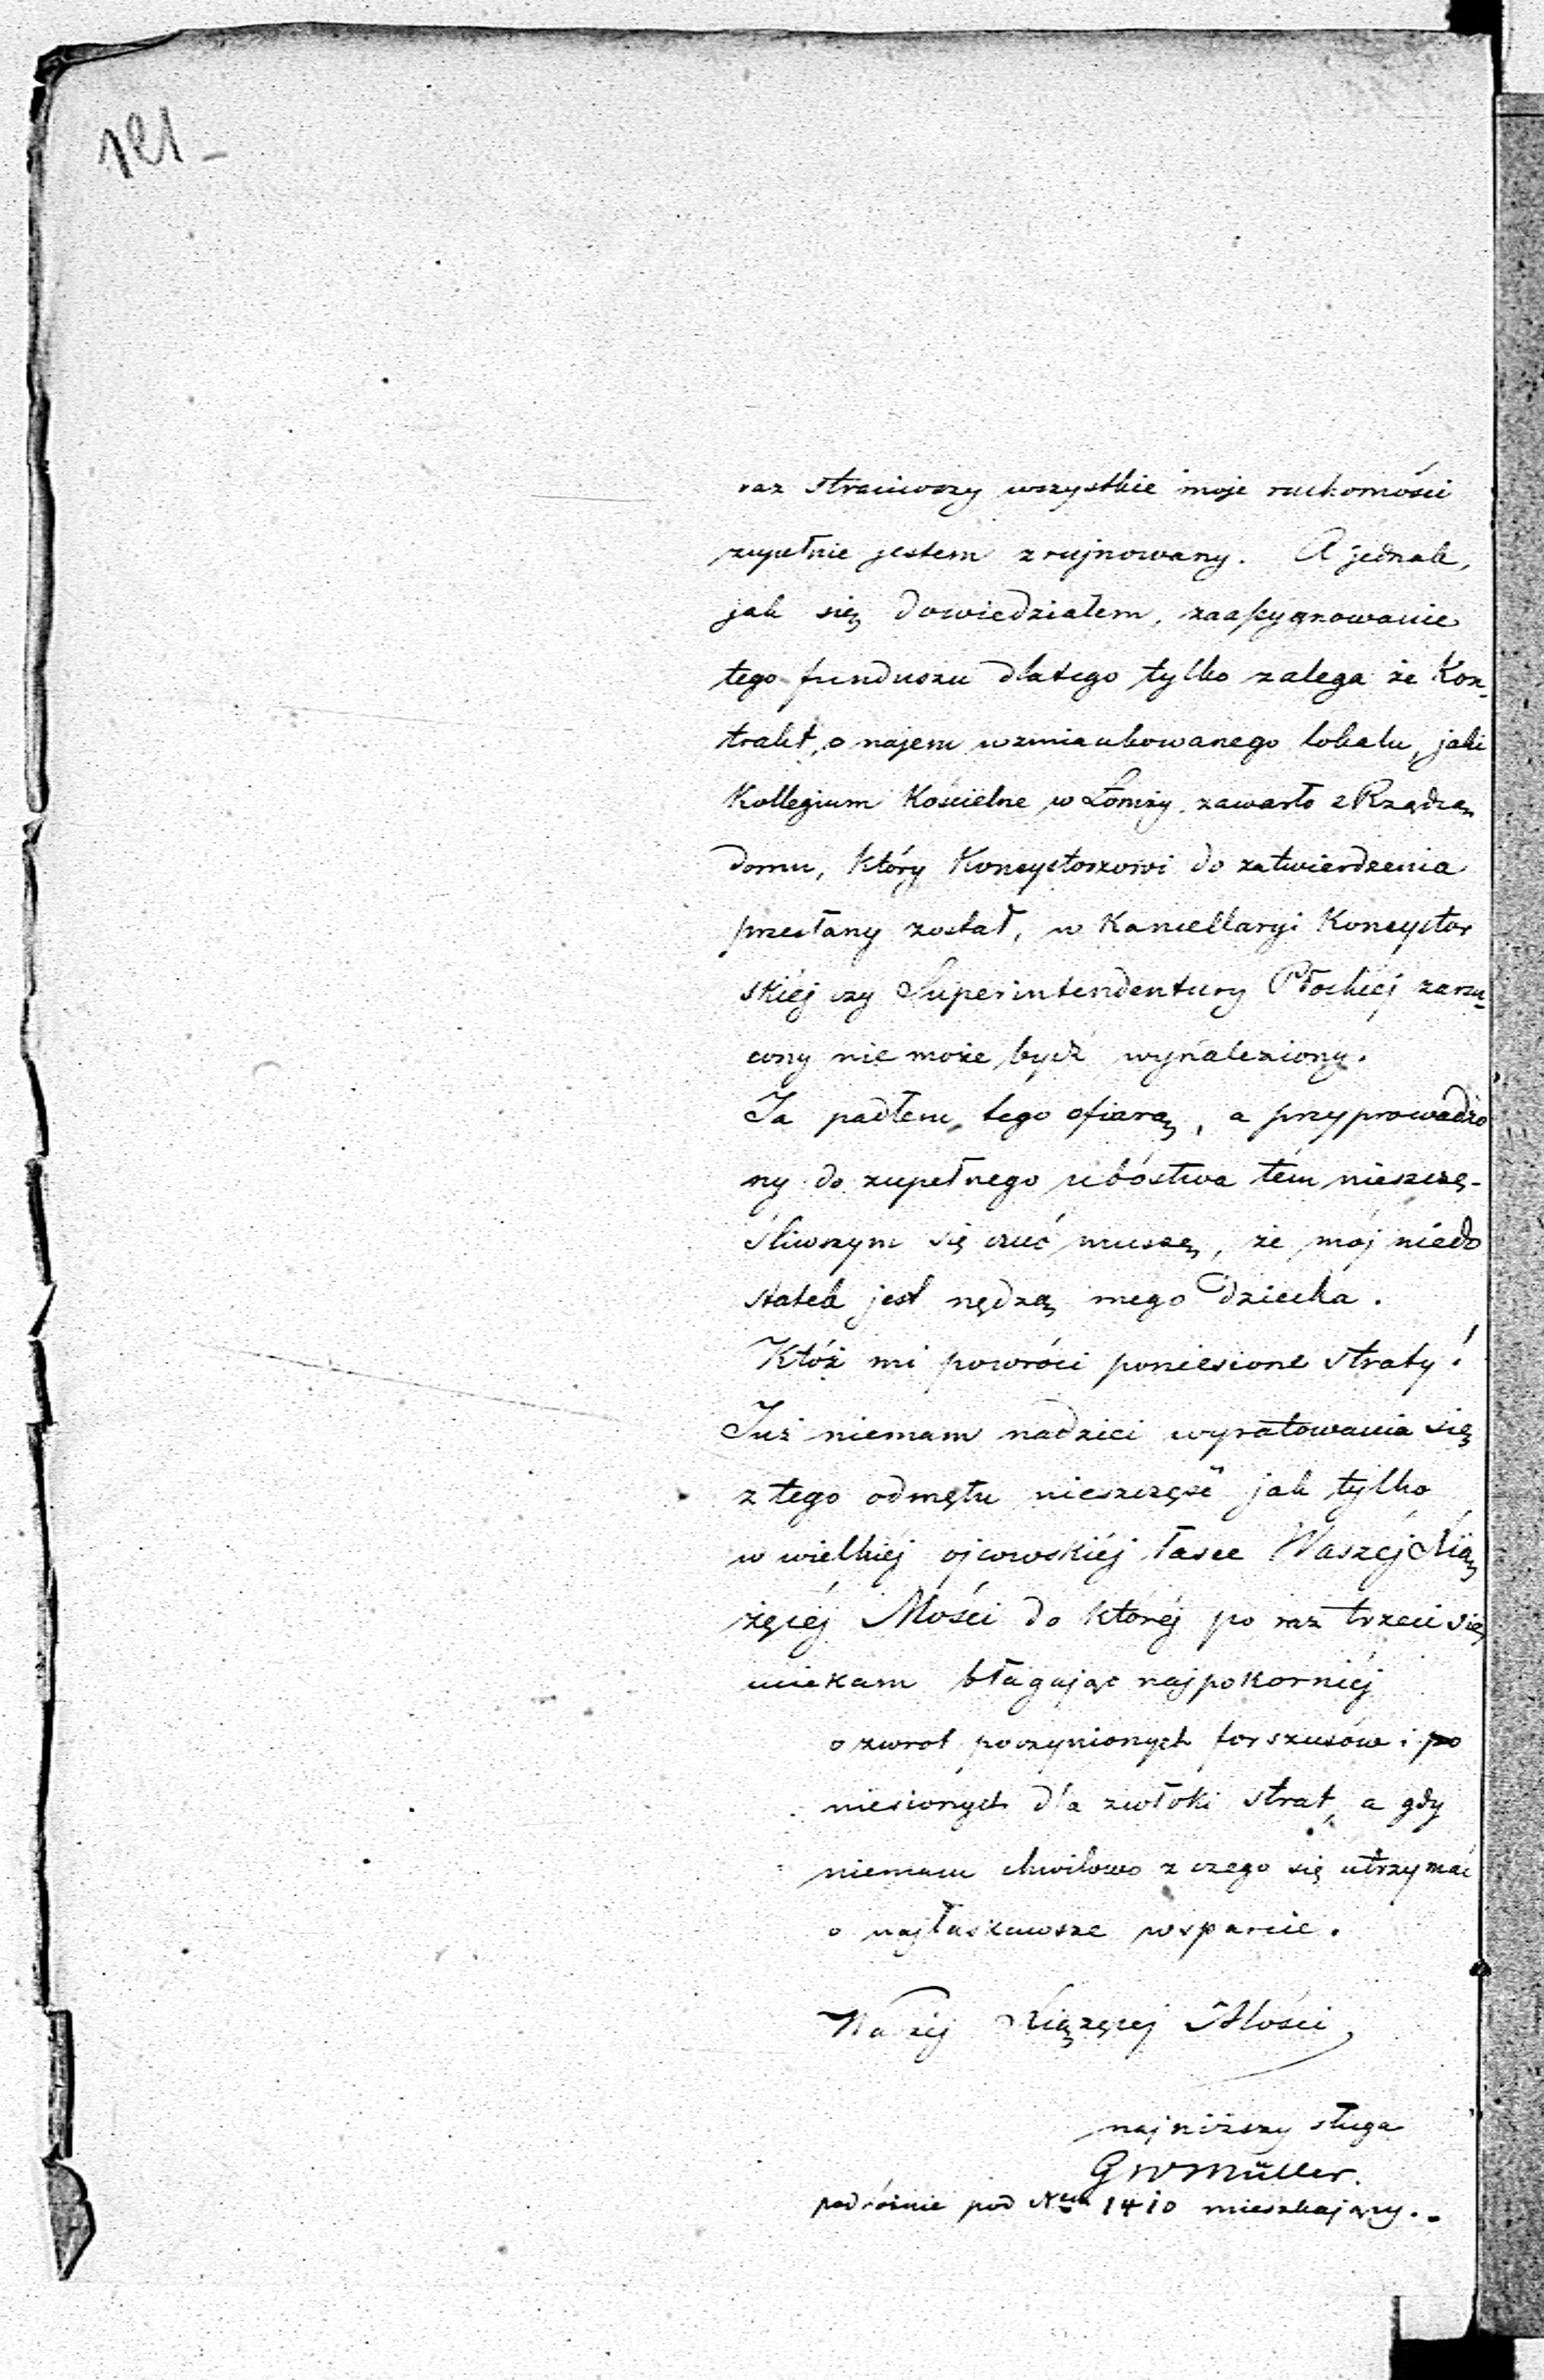 121 -
raz straciwszy wszystkie moje ruchomości
zupełnie jestem zrujnowany. A jednak,
jak się dowiedziałem, zaassygnowanie
tego funduszu dlatego tylko zalega że Kon-
trakt, o najem wzmiankowanego lokalu, jaki
Kollegium Kościelne w Łomży zawarło z Rządzą
domu, który Konsystorzowi do zatwierdzenia
przesłany został, w Kancellaryi Konsystor
skiéj czy Superintendentury Płockiéj zarzu-
cony nie może bydź wynaleziony.
Ja padłem tego ofiarą, a przyprowadzo
ny do zupełnego ubóstwa tém nieszczę-
śliwszym się czuć muszę, że mój niedo
statek jest nędzą mego dziecka.
Któż mi powróci poniesione straty!
Już niemam nadziei wyratowania się
z tego odmętu nieszczęść jak tylko
w wielkiéj ojcowskiéj łasce Waszéj Xią
żęcéj Mości do któréj po raz trzeci się
uciekam błagając najpokorniéj
o zwrot poczynionych forszusów i po
niesionych dla zwłoki strat, a gdy
niemam chwilowo z czego się utrzymać
o najłaskawsze wsparcie.
Waszéj Xiążęcej Mości
najniższy sługa
GWMüller.
podróżnie pod Nem 1410 mieszkający..